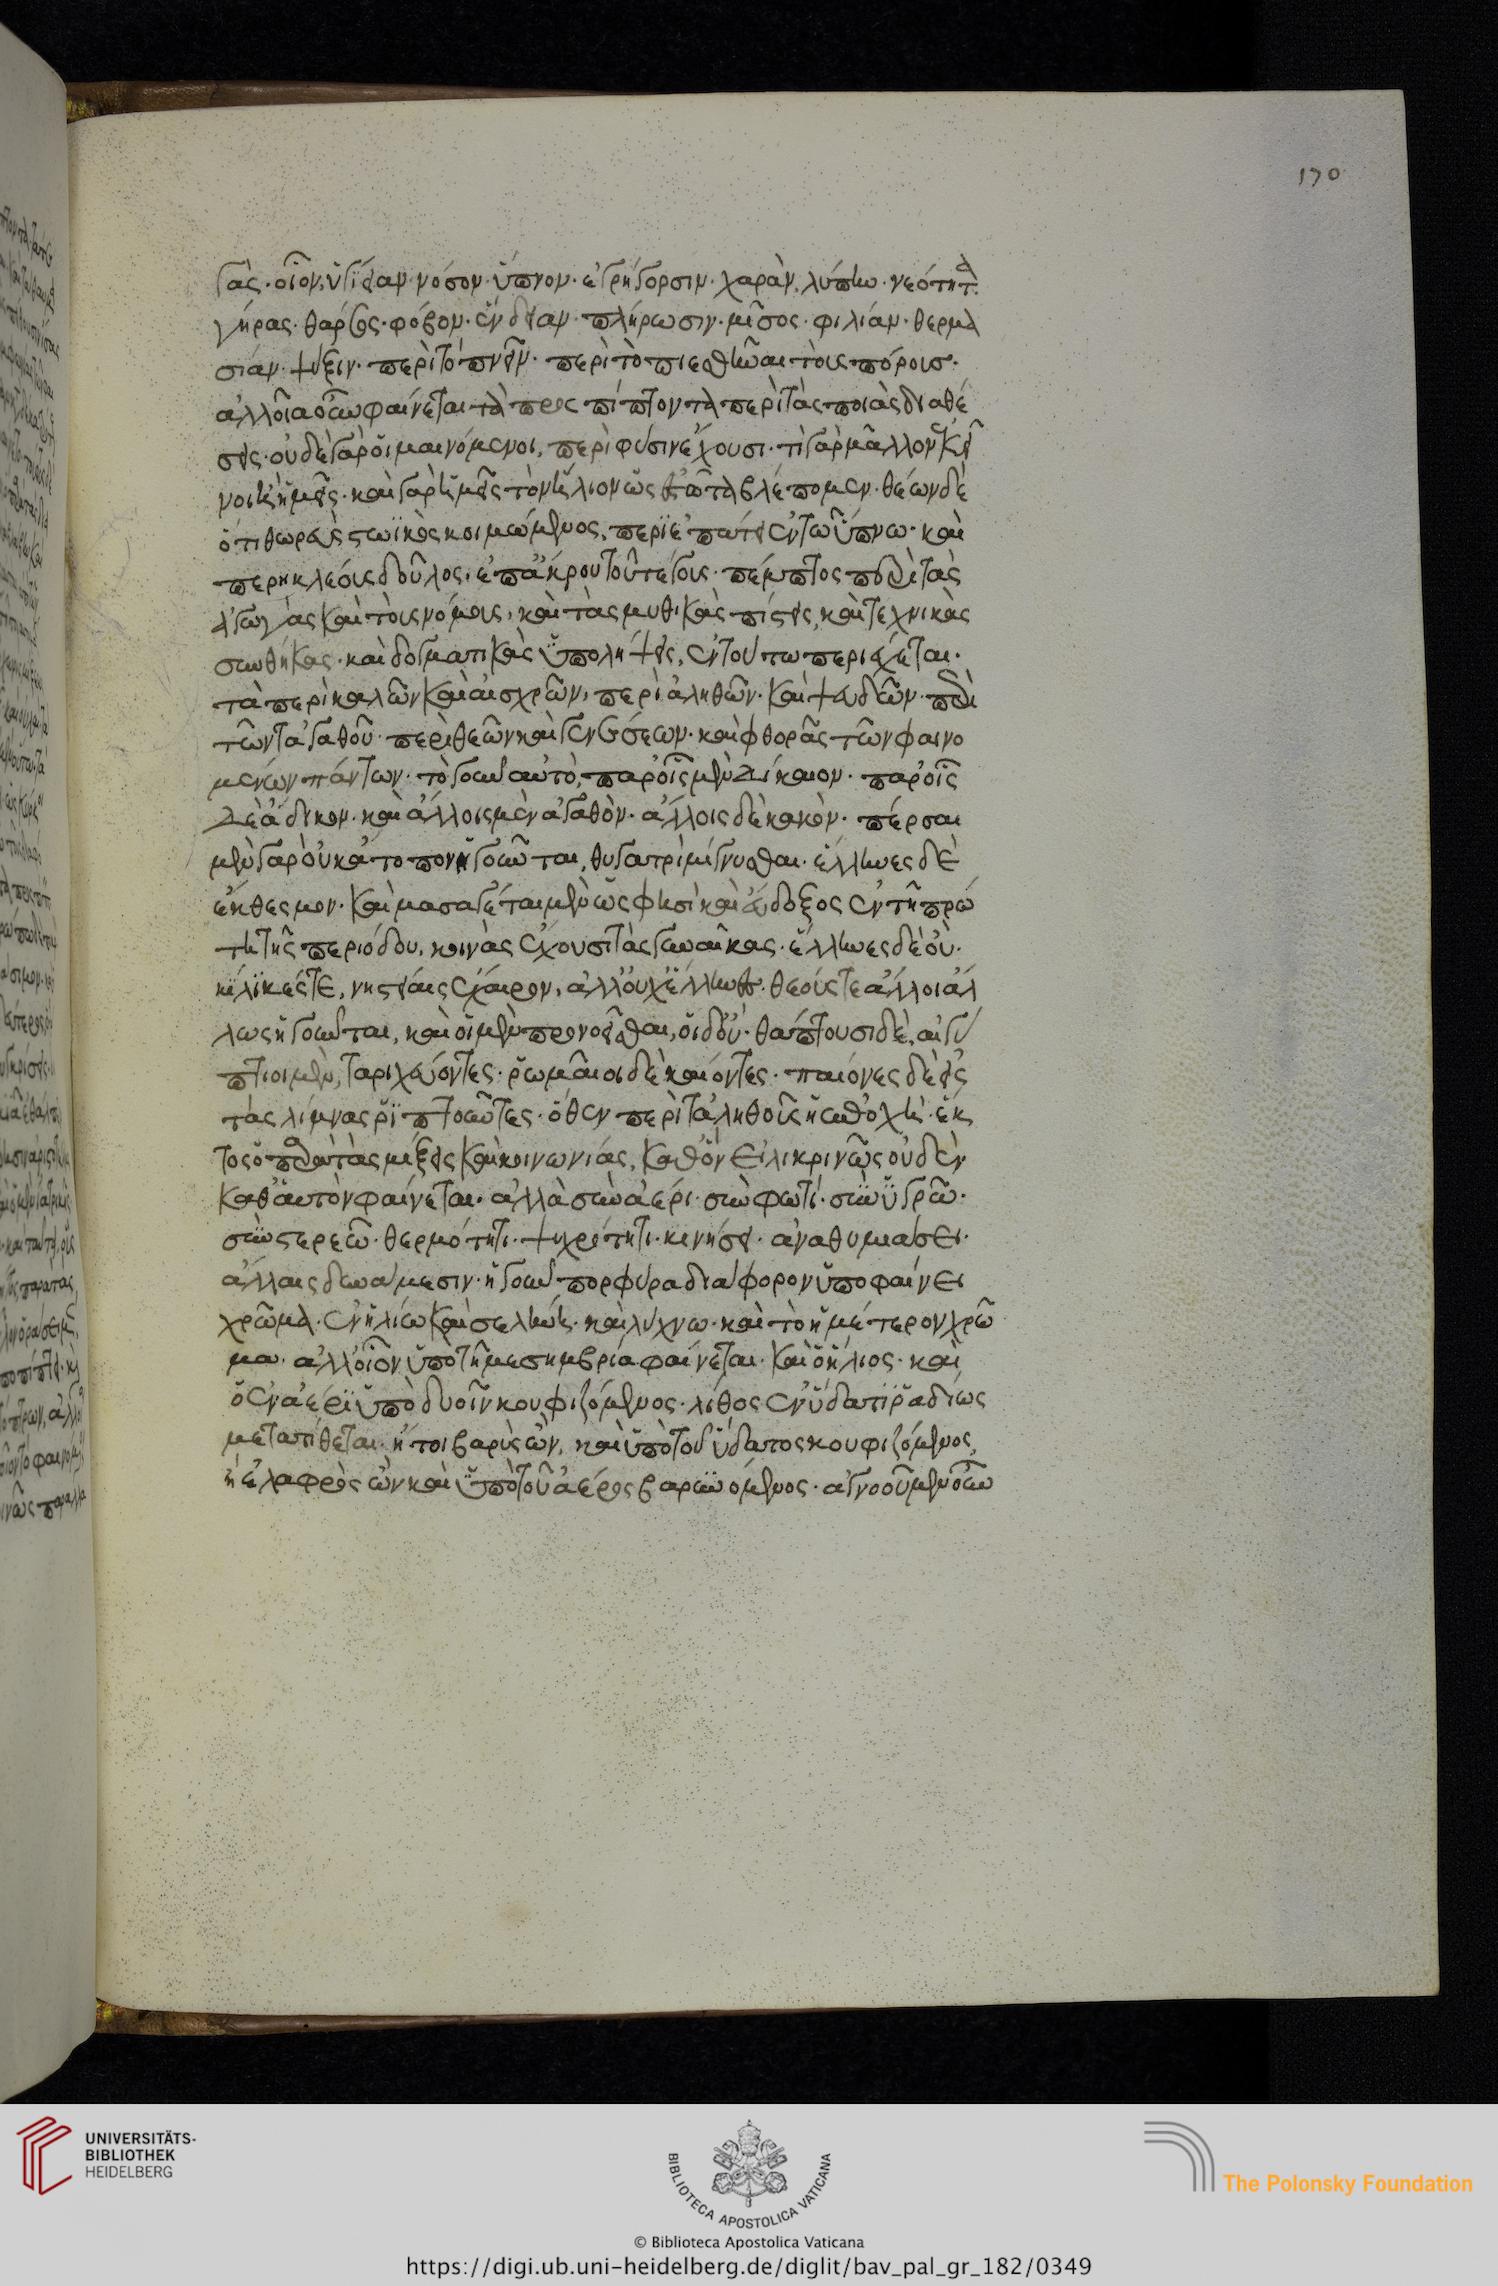 170
γὰς· οἷον, ὑγίειαν· νόσον· ὕπνον· ἐγρήγορσιν· χαρὰν, λύπην· νεότητα
γήρας· θάρσος· φόβον· ἔνδειαν· πλήρωσιν· μῖσος· φιλίαν· θερμα
σίαν· ψύξιν· περὶ τὸ πνεῖν· περὶ τὸ πιεσθῆναι τοὺς πόρους·
ἀλλοῖα οὖν φαίνεται τὰ προσπίπτοντα περὶ τὰς ποιὰς διαθέ
σεις· οὐδὲ γὰρ οἱ μαινόμενοι, περὶ φύσιν ἔχουσι· τί γὰρ μᾶλλον ἐκεῖ
νοι ἢ ἡμεῖς· καὶ γὰρ ἡμεῖς τὸν ἥλιον ὡς ἑστῶτα βλέπομεν· θέων δὲ
ὁ τιθωραιεὺς στωϊκὸς κοιμώμενος, περιεπάτει ἐν τῷ ὕπνῳ· καὶ
περικλέους δοῦλος, ἐπ' ἄκρου τοῦ τέγους· πέμπτος παρὰ τὰς
ἀγωγὰς καὶ τοὺς νόμους, καὶ τὰς μυθικὰς πίστεις, καὶ τεχνικὰς
συνθήκας· καὶ δογματικὰς ὑπολήψεις, ἐν τούτῳ περιέχεται·
τὰ περὶ καλῶν καὶ αἰσχρῶν, περὶ ἀληθῶν· καὶ ψευδῶν· περὶ
τῶν τἀγαθοῦ· περὶ θεῶν καὶ γενέσεων· καὶ φθορᾶς τῶν φαινο
μένων πάντων· τὸ γοῦν αὐτὸ, παρ' οἷς μὲν δίκαιον· παρ' οἷς
δὲ ἄδικον· καὶ ἄλλοις μὲν ἀγαθὸν· ἄλλοις δὲ κακὸν· πέρσαι
μὲν γὰρ οὐκ ἄτοπον ἡγοῦνται, θυγατρὶ μίγνυσθαι· ἕλληνες δὲ
ἔκθεσμον· καὶ μασαγέται μὲν ὥς φησὶ καὶ εὔδοξος ἐν τῇ πρώ
τῃ τῆς περιόδου, κοινὰς ἔχουσι τὰς γυναῖκας· ἕλληνες δὲ οὐ·
κίλικές τε, ληστείαις ἔχαιρον, ἀλλ' οὐχ ἕλληνες· θεούς τε ἄλλοι ἄλ
λως ἡγοῦνται, καὶ οἱ μὲν προνοεῖσθαι, οἱ δ' οὔ· θάπτουσι δὲ, αἰγύ
πτιοι μὲν, ταριχεύοντες· ῥωμαῖοι δὲ καίοντες· παίονες δὲ εἰς
τὰς λίμνας ῥιπτοῦντες· ὅθεν περὶ τἀληθοῦς ἡ ἐποχή· ἕκ
τος ὁ παρὰ τὰς μίξεις καὶ κοινωνίας, καθ' ὃν εἰλικρινῶς οὐδὲν
καθ' αὑτὸν φαίνεται· ἀλλὰ σὺν ἀέρι· σὺν φωτί· σὺν ὑγρῷ·
σὺν στερεῷ· θερμότητι· ψυχρότητι· κινήσει· ἀναθυμιάσει·
ἄλλαις δυνάμεσιν· ἡ γοῦν πορφύρα διάφορον ὑποφαίνει
χρῶμα· ἐν ἡλίῳ καὶ σελήνῃ· καὶ λύχνῳ· καὶ τὸ ἡμέτερον χρῶ
μα· ἀλλοῖον ὑπὸ τῇ μεσημβρίᾳ φαίνεται· καὶ ὁ ἥλιος· καὶ
ὁ ἐν ἀέρι ὑπὸ δυοῖν κουφιζόμενος· λίθος ἐν ὕδατι ῥαδίως
μετατίθεται· ἤτοι βαρὺς ὢν, καὶ ὑπὸ τοῦ ὕδατος κουφιζόμενος,
ἢ ἐλαφρὸς ὢν καὶ ὑπὸ τοῦ ἀέρος βαρυνόμενος· ἀγνοοῦμεν οὖν
UNIVERSITÄTS-
BIBLIOTHEK
HEIDELBERG
BIBLIOTECA APOSTOLICA VATICANA
The Polonsky Foundation
© Biblioteca Apostolica Vaticana
https://digi.ub.uni-heidelberg.de/diglit/bav_pal_gr_182/0349